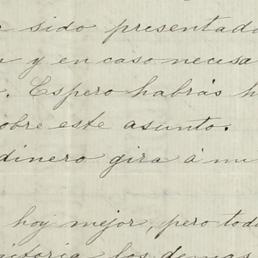 sido presentado
y en caso necesa
. Espero habrás h
obre este asunto.
dinero gira á mi
hoy mejor, pero tod
los demas